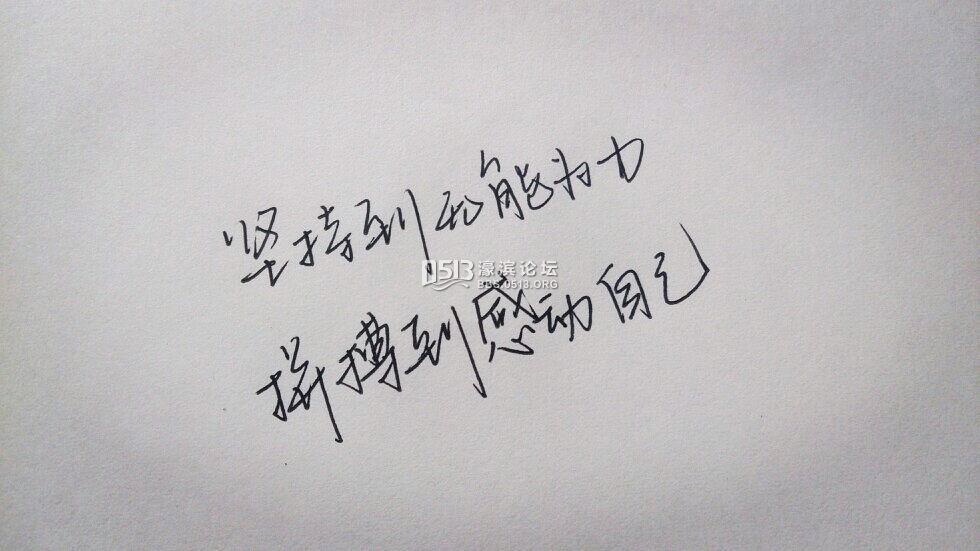 坚持到无能为力
0513 濠滨论坛
BBS.0513.ORG
拼搏到感动自己